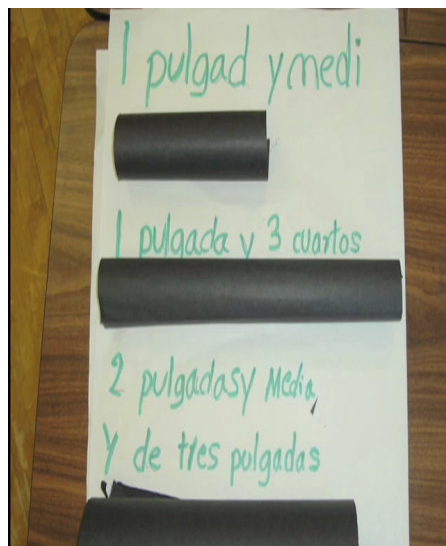 1 pulgad y medi
1 pulgada y 3 cuartos
2 pulgadas y Media,
Y de tres pulgadas